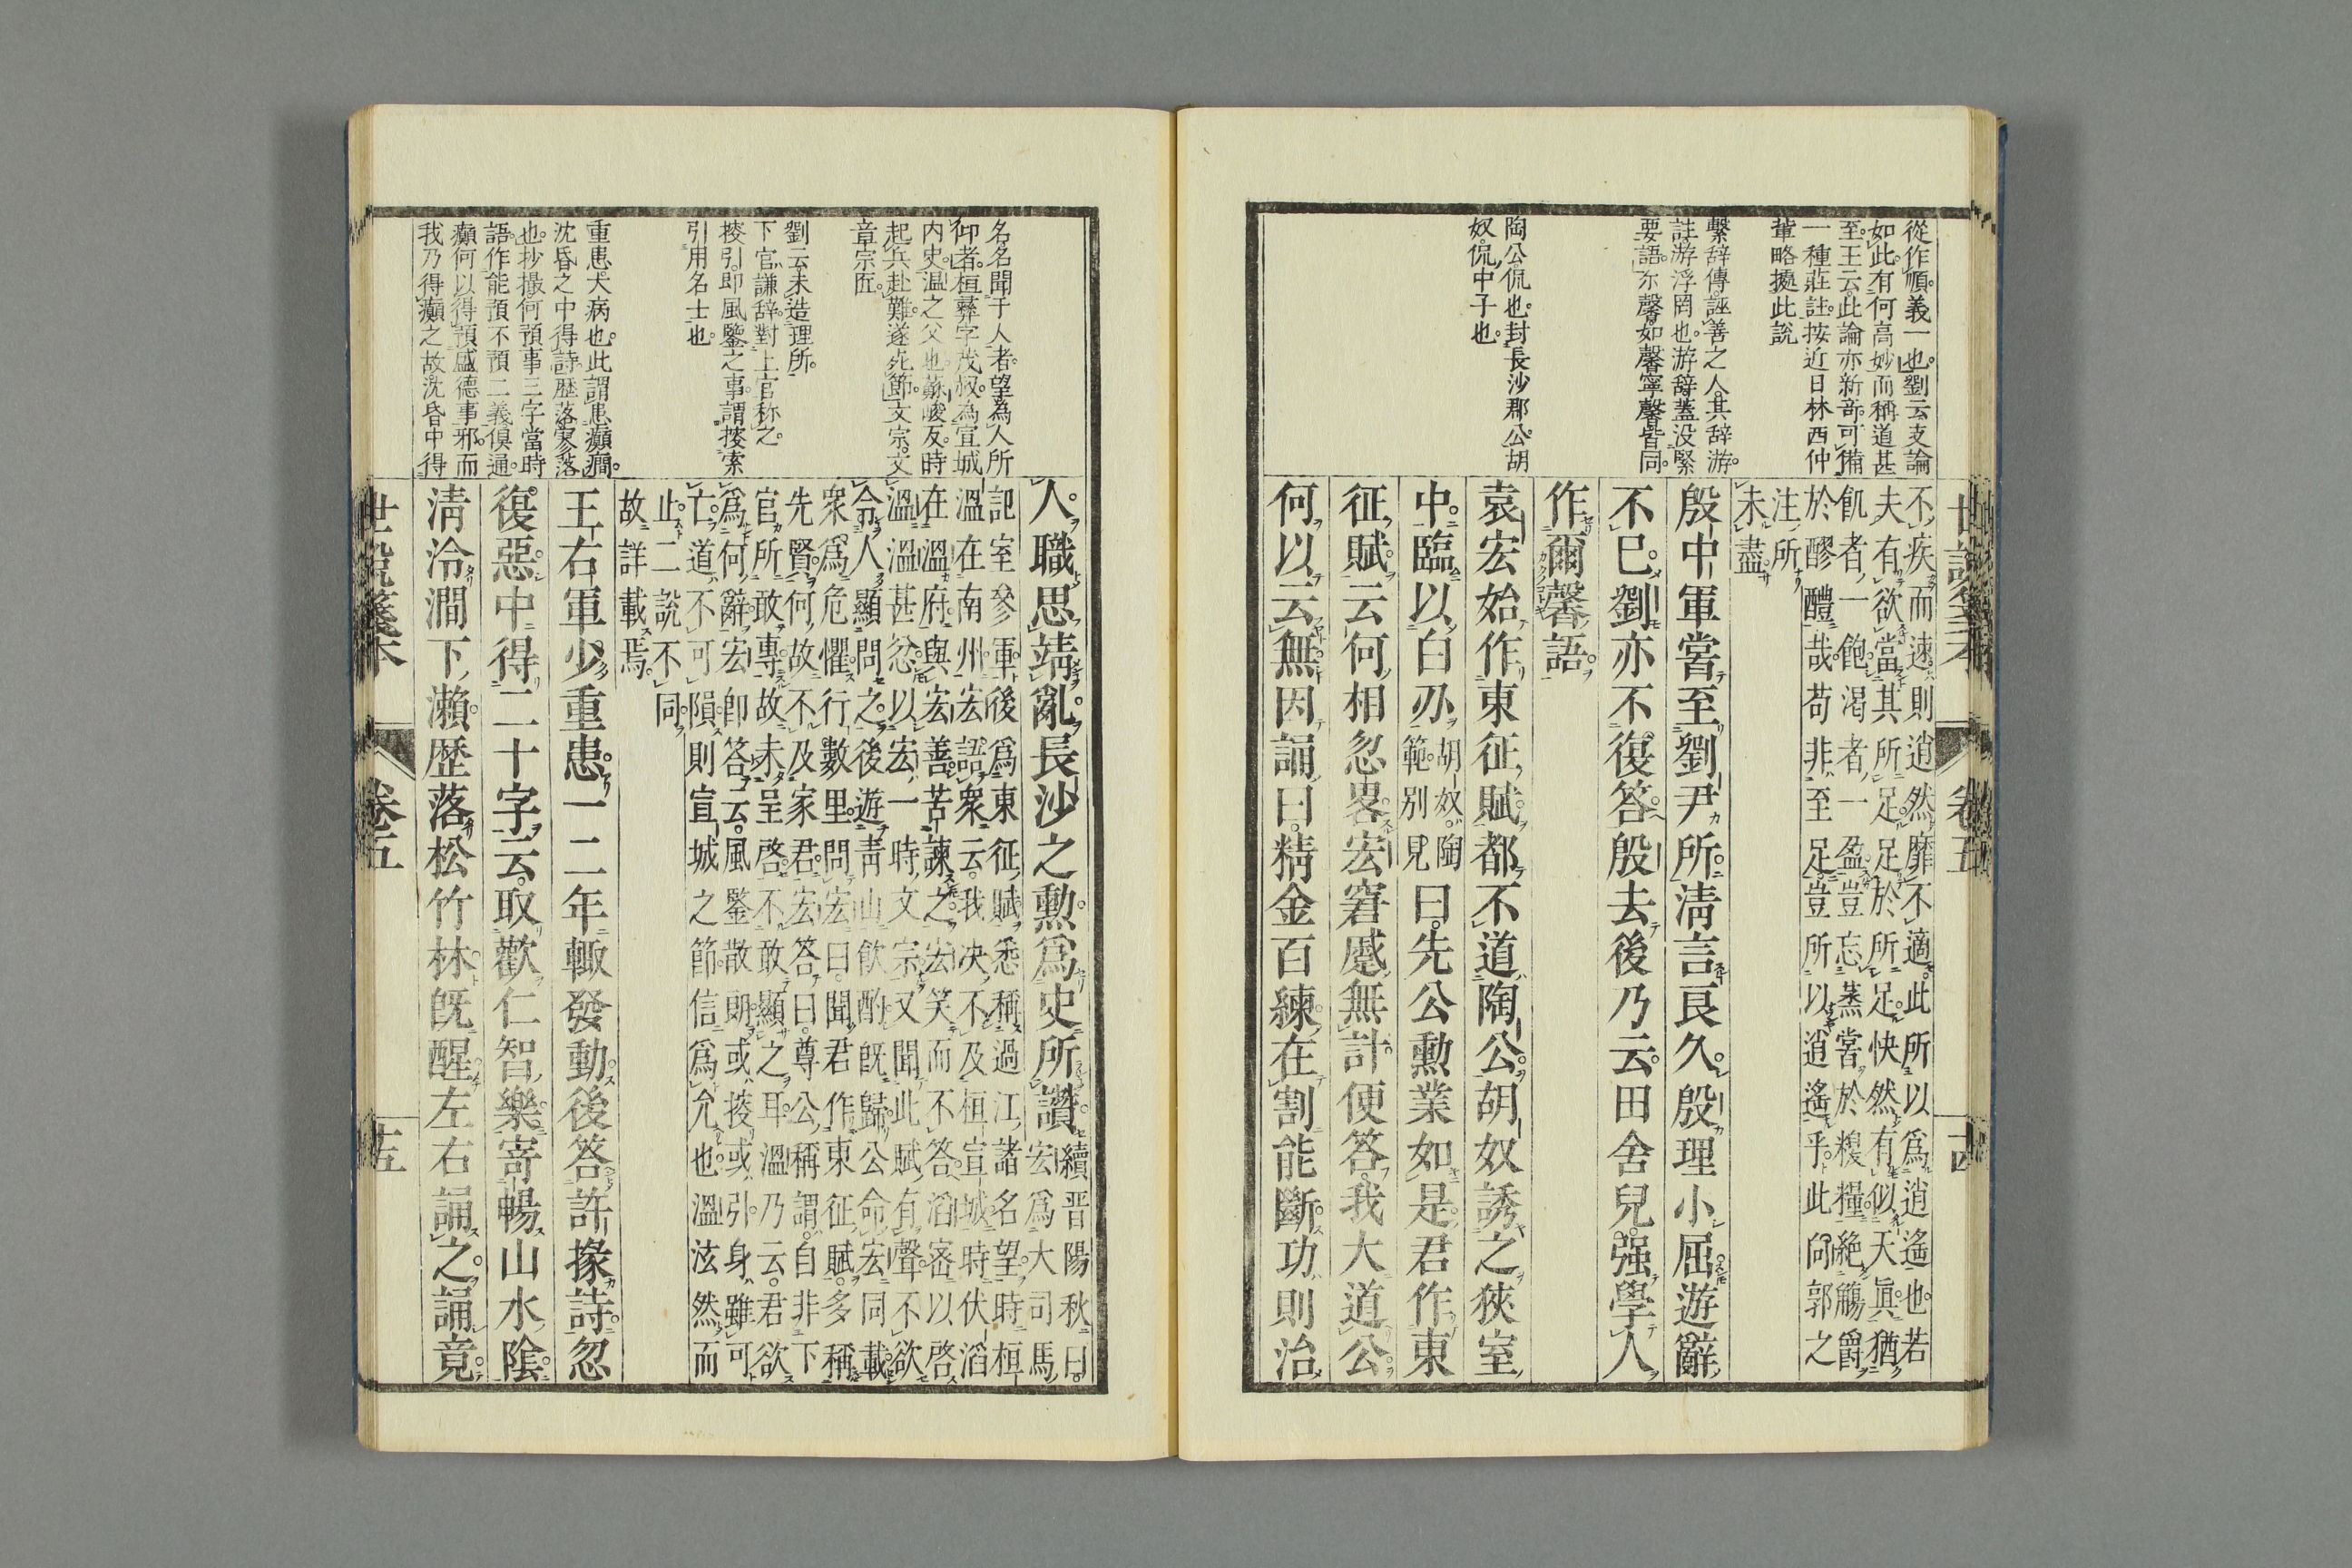 從作順。義一也。劉云支論
如此。有何高妙而稱道甚
至。王云。此論亦新奇。可備
一種莊註。按近日林西仲
輩略㩀此說
繫辭傳。誣善之人。其辭游。
註游浮罔也。游辭蓋没緊
要語。尓馨如馨寧馨皆同。
陶公侃也。封長沙郡公。胡
奴。侃中子也。
不疾而速。則逍然靡不適。此所以爲逍遙也。若
夫有欲當其所足。足於所足。快然有似天眞。猶
飢者一飽。渴者一盈。豈忘烝嘗於糗糧。絕觴爵
於醪醴哉。苟非至足。豈所以逍遙乎。此向郭之
注所
未盡
殷中軍嘗至劉尹所。淸言良久。殷理小屈。遊辭
不已。劉亦不復答。殷去後乃云。田舍兒。强學人
作爾馨語。
袁宏始作東征賦。都不道陶公。胡奴誘之狹室
中。臨以白刃。胡奴。陶
範。別見
曰。先公勳業如是。君作東
征賦。云何相忽畧。宏窘蹙無計。便答。我大道公。
何以云無。因誦曰。精金百練。在割能斷。功則治
世說箋本 卷五 十四
名名聞于人者。望為人所
仰者。桓彝字茂叔。為宣城
内史。溫之父也。蘇峻反。時
起兵赴難。遂死節。文宗。文
章宗匠。
劉云。未造理所。
下官。謙辞。對上官称之。
㨗引。即風鑒之事。謂㨗索
引用名士也。
重患。大病也。此謂患癲癎。
沈昏之中得詩。歴落寥落
也。抄撮何預事三字當時
語。作能預不預二義俱通。
癲何以得預盛德事邪。而
我乃得癲之故。沈昏中得
人。職思靖亂。長沙之勳。爲史所讃。續晋陽秋曰。
宏爲大司馬
記室參軍。後爲東征賦。悉稱過江諸名望。時桓
溫在南州。宏語衆云。我決不及桓宣城。時伏滔
在溫府。與宏善。苦諫之。宏笑而不答。滔密以啓
溫。溫甚忿。以宏一時文宗。又聞此賦有聲。不欲
令人顯問之。後遊靑山飮酌。旣歸。公命宏同載。
衆爲危懼。行數里。問宏曰。聞君作東征賦。多稱
先賢。何故不及家君。宏答曰。尊公稱謂。自非下
官所敢專。故未呈啓。不敢顯之耳。溫乃云。君欲
爲何辭。宏卽答云。風鑒散朗。或㨗或引。身雖可
亡。道不可隕。則宣城之節。信爲允也。溫泫然而
止。二說不同。
故詳載焉。
王右軍少重患。一二年輙發動。後答許掾詩。忽
復惡中得二十字。云。取歡仁智樂。寄暢山水陰。
淸泠澗下瀨。歴落松竹林。旣醒。左右誦之。誦竟
世說箋本 卷五 十五